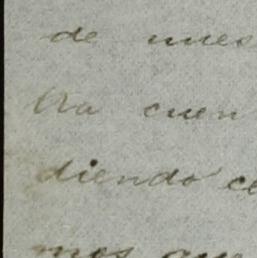 de nues
tra cuen
diendo ce
mos que